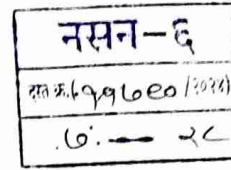 नसन-६
दस्त क्र. ११७९० /२०२४
७ — २८